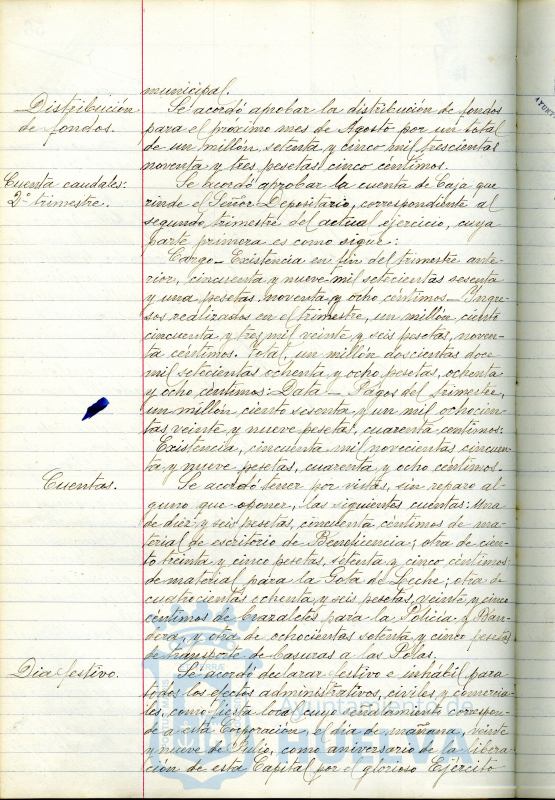 municipal.
Distribución de fondos.
Se acordó aprobar la distribución de fondos
para el próximo mes de Agosto por un total
de un millón, setenta y cinco mil trescientas
noventa y tres pesetas cinco céntimos.
Cuenta caudales: 2º trimestre.
Se acordó aprobar la cuenta de Caja que
rinde el Señor Depositario, correspondiente al
segundo trimestre del actual ejercicio, cuya
parte primera es como sigue:
Cargo - Existencia en fin del trimestre ante-
rior, cincuenta y nueve mil setecientas sesenta
y una pesetas, noventa y ocho céntimos - Ingre-
sos realizados en el trimestre, un millón ciento
cincuenta y tres mil veinte y seis pesetas, noven-
ta céntimos. Total, un millón doscientas doce
mil setecientas ochenta y ocho pesetas, ochenta
y ocho céntimos: Data - Pagos del trimestre,
un millón, ciento sesenta y un mil ochocien-
tas veinte y nueve pesetas, cuarenta céntimos:
Existencia, cincuenta mil novecientas cincuen-
ta y nueve pesetas, cuarenta y ocho céntimos.
Cuentas.
Se acordó tener por vistas, sin reparo al-
guno que oponer, las siguientes cuentas: Una
de diez y seis pesetas, cincuenta céntimos de ma-
terial de escritorio de Beneficencia; otra de cien-
to treinta y cinco pesetas, setenta y cinco céntimos:
de material para la Gota de Leche; otra de
cuatrocientas ochenta y seis pesetas, veinte y cinco
céntimos de brazaletes para la Policía y Ban-
dera, y otra de ochocientas setenta y cinco pesetas
de transporte de basuras a las Pozas.
Dia festivo.
Se acordó declarar festivo e inhábil para
todos los efectos administrativos, civiles y comercia-
les, como fiesta local cuyo señalamiento correspon-
de a esta Corporación, el día de mañana, veinte
y nueve de Julio, como aniversario de la libera-
ción de esta Capital por el glorioso Ejército
Ayuntamiento de